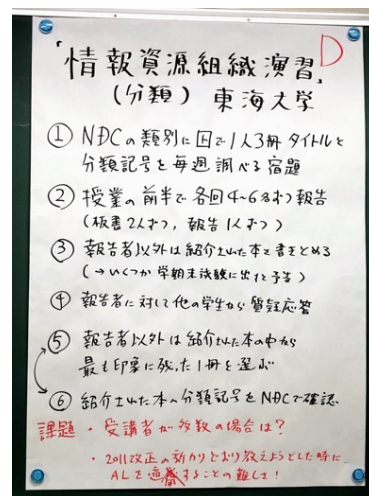 D
「情報資源組織演習」
(分類) 東海大学
① NDCの類別に図で1人3冊タイトルと
分類記号を毎週調べる宿題
② 授業の前半で各回4〜6名ずつ報告
(板書2人ずつ, 報告1人ずつ)
③ 報告者以外は紹介された本を書きとめる
(→いくつか学期末試験に出すと予告)
④ 報告者に対して他の学生から質疑応答
⑤ 報告者以外は紹介された本の中から
最も印象に残った1冊を選ぶ
⑥ 紹介された本の分類記号をNDCで確認
課題・受講者が多数の場合は?
・2011改正の新カリどおり教えようとした時に
ALを することの難しさ!